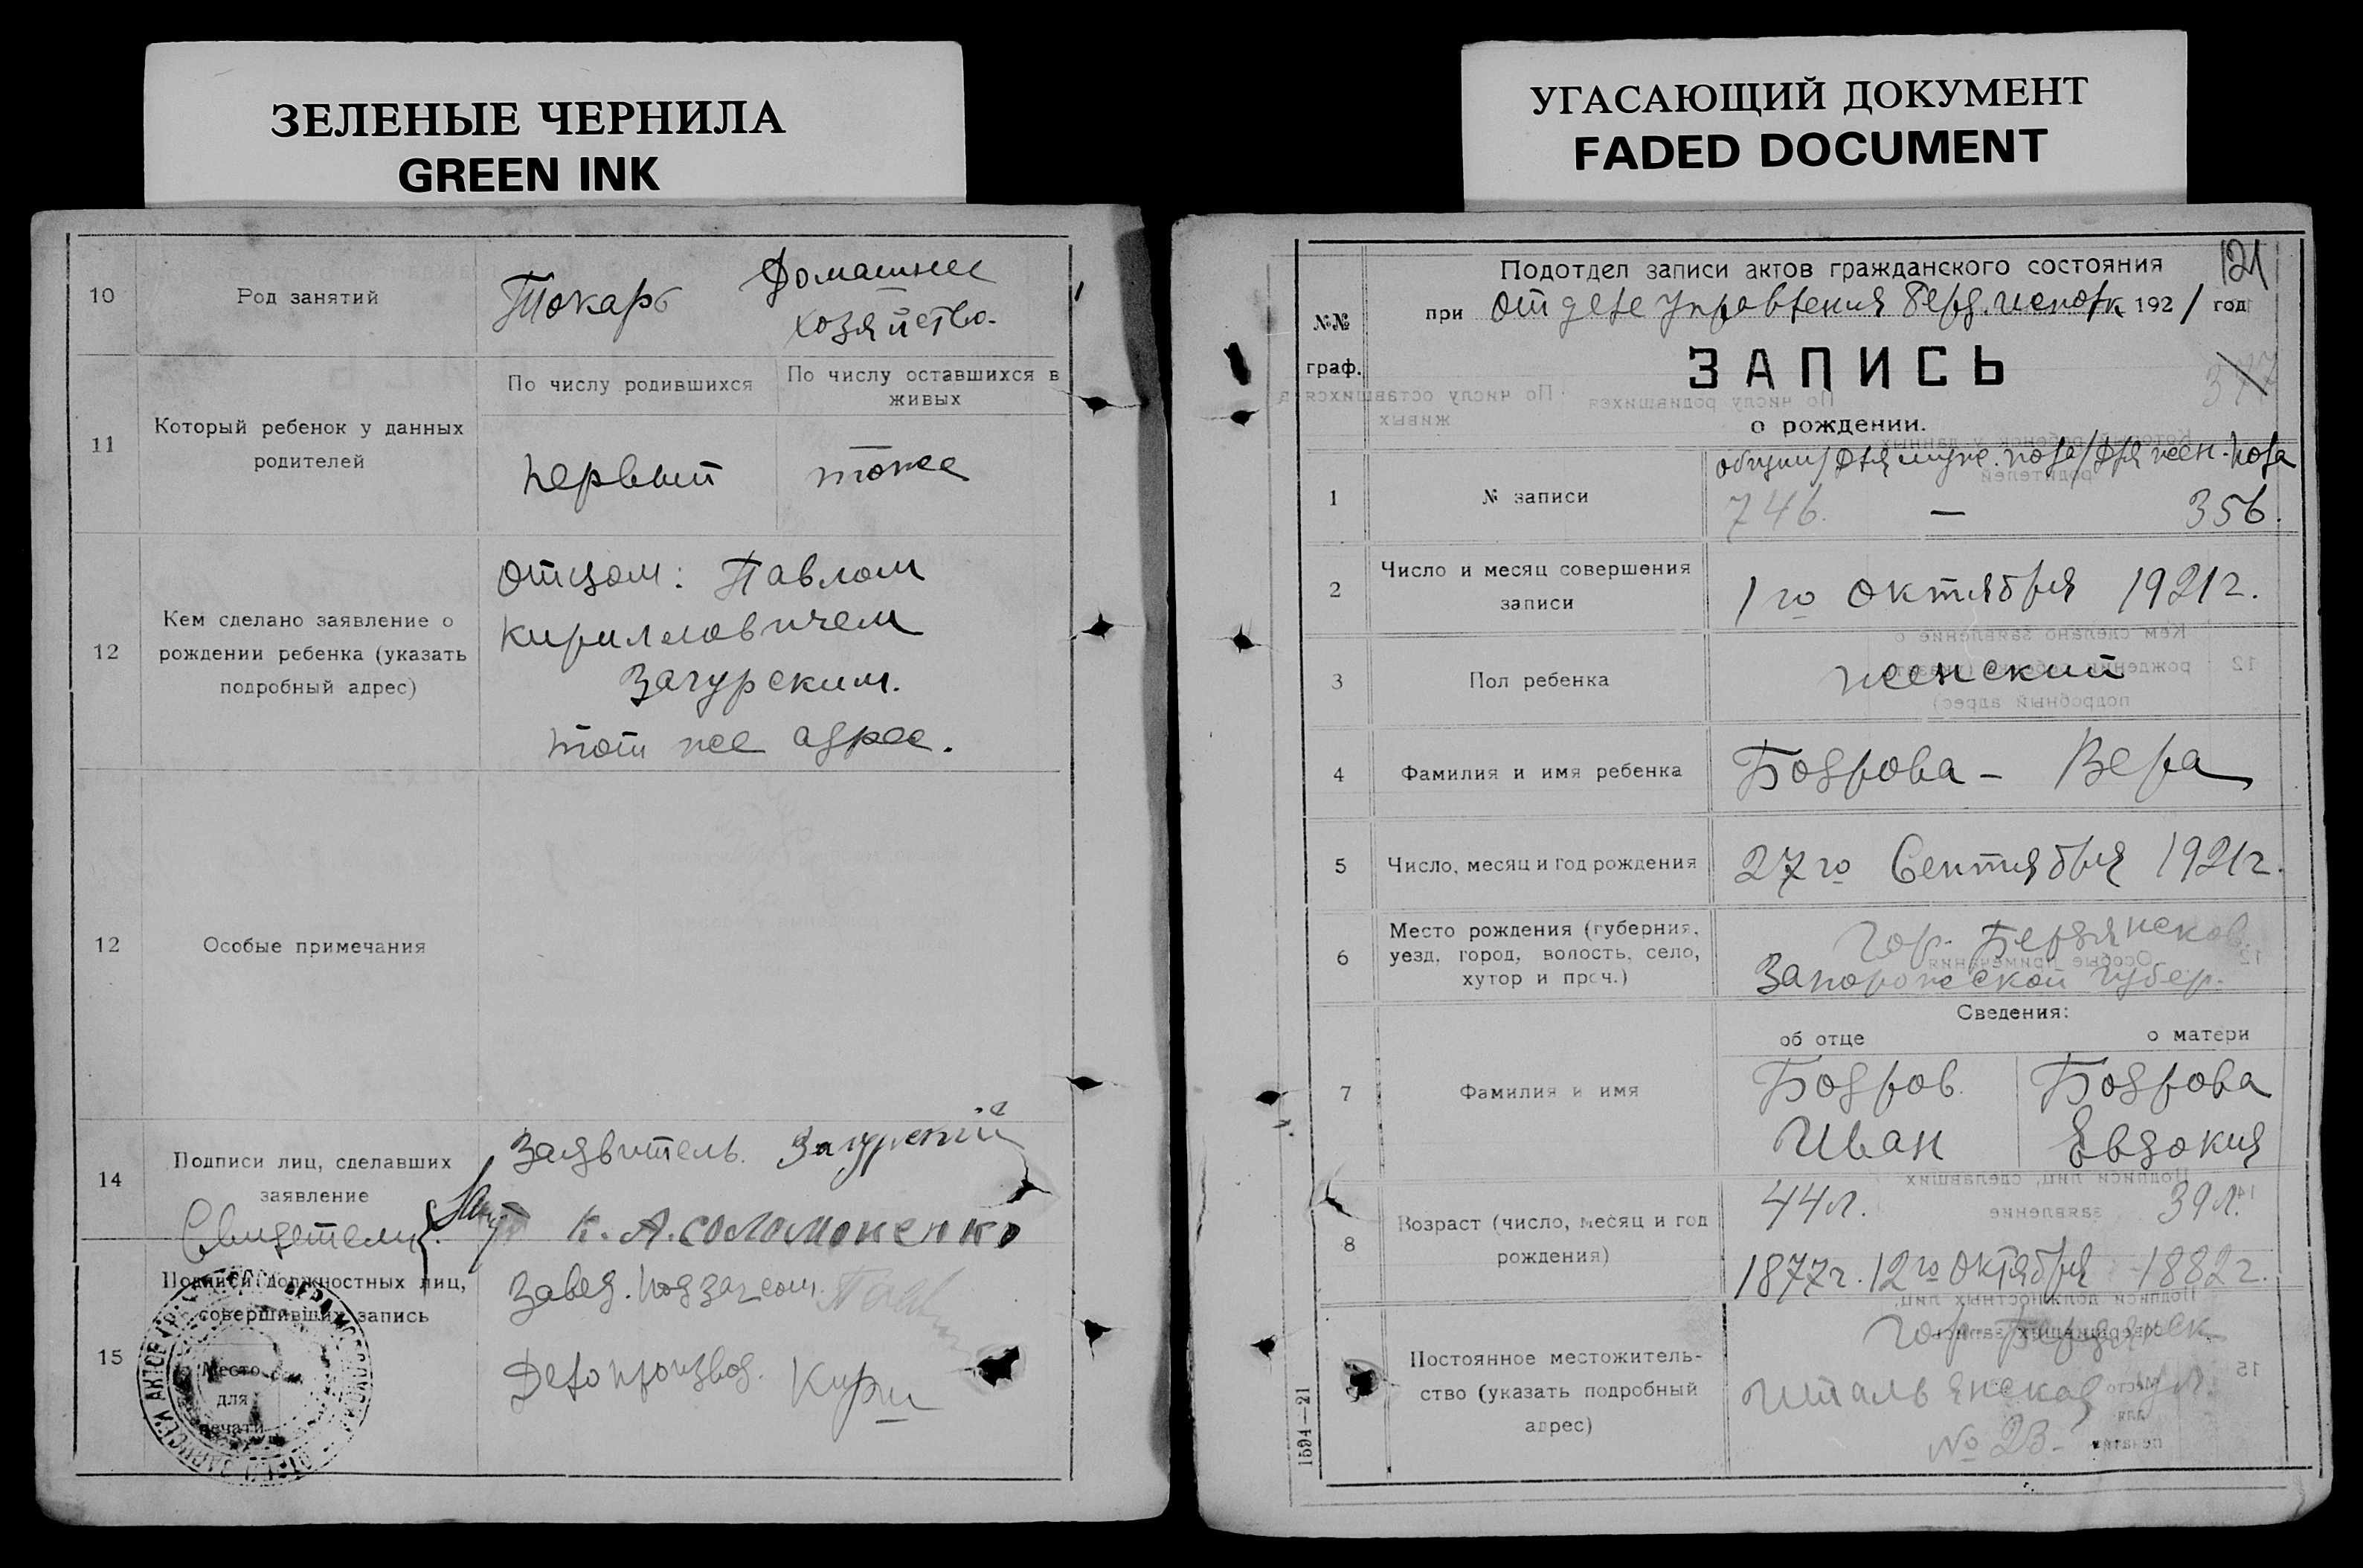 ЗЕЛЕНЫЕ ЧЕРНИЛА
GREEN INK
10
Род занятий
Токарь
Домашнее
хозяйство.
11
Который ребенок у данных
родителей
По числу родившихся
По числу оставшихся в
живых
первый
тоже
12
Кем сделано заявление о
рождении ребенка (указать
подробный адрес)
Отцом: Павлом
Кирилловичем
Загурским.
тот же адрес.
12
Особые примечания
14
Подписи лиц, сделавших
заявление
Заявитель. Загурский
Свидетели К. А. Соломоненко
15
Подписи должностных лиц,
совершивших запись
Место
для
печати
Завед. подзагсом
Делопроизвод. Кирш
УГАСАЮЩИЙ ДОКУМЕНТ
FADED DOCUMENT
№№
граф.
Подотдел записи актов гражданского состояния
121
при отделе управления Берд. исполк 1921 год
ЗАПИСЬ
377
о рождении.
1
№ записи
общий/для муж. пола/для жен. пола
746. — 356.
2
Число и месяц совершения
записи
1го Октября 1921г.
3
Пол ребенка
женский
4
Фамилия и имя ребенка
Бодрова - Вера
5
Число, месяц и год рождения
27го Сентября 1921г.
6
Место рождения (губерния,
уезд, город, волость, село,
хутор и проч.)
Гор. Бердянсков
Запорожской губер.
Сведения:
об отце
о матери
7
Фамилия и имя
Бодров.
Иван
Бодрова
Евдокия
8
Возраст (число, месяц и год
рождения)
44л. 39л.
1877г. 12го Октября 1882г.
Постоянное местожитель-
ство (указать подробный
адрес)
Гор. Бердянск
Итальянская ул.
№ 23-
1594—21